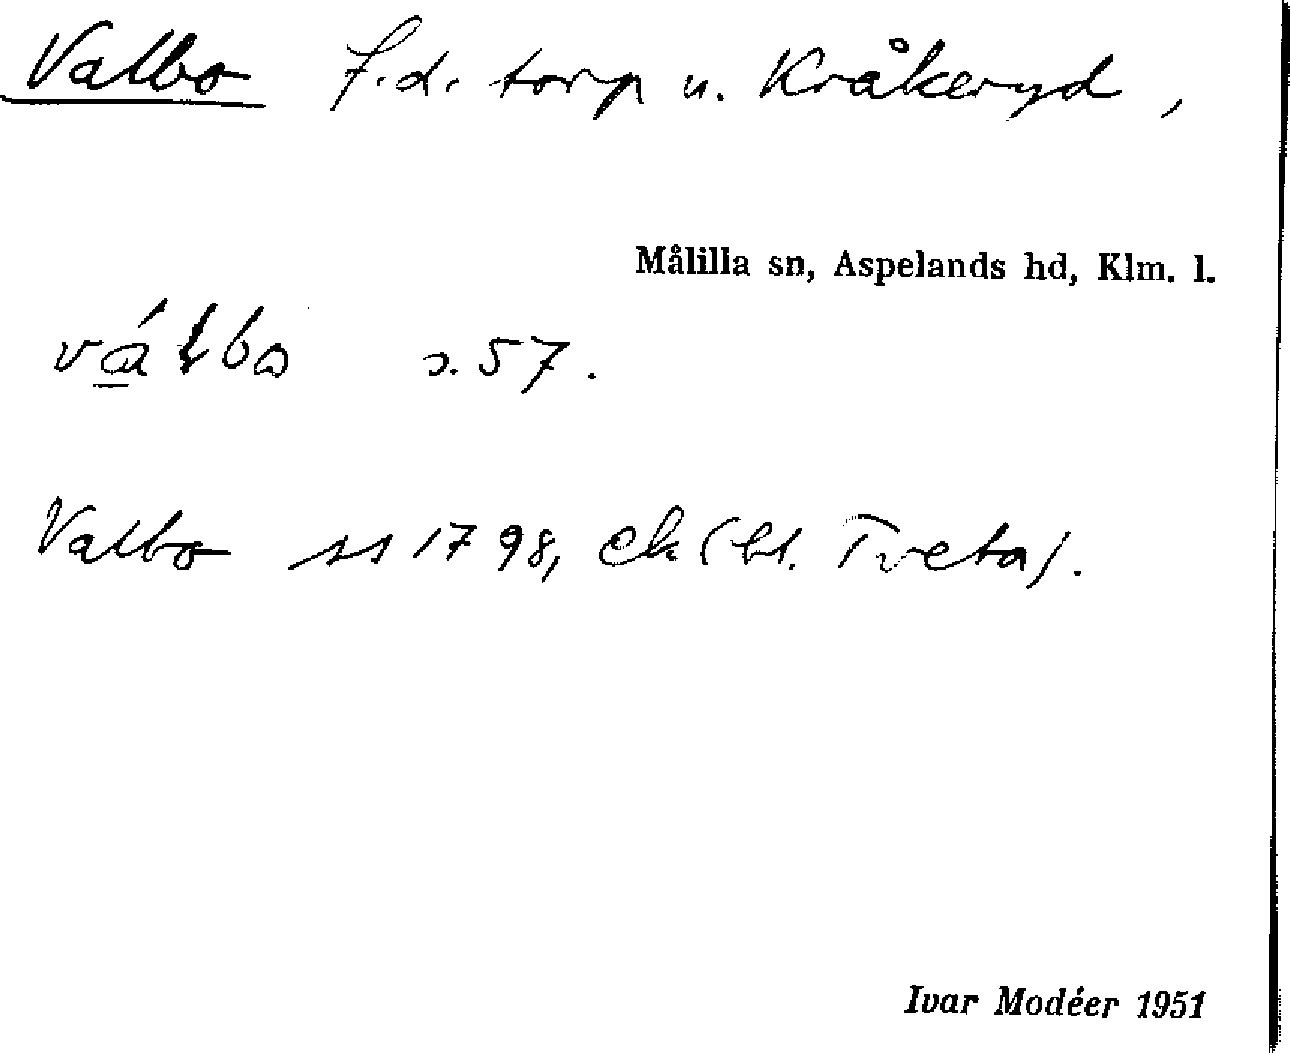 Valbo f.d. torp u. Kråkeryd,
Målilla sn, Aspelands hd, Klm. l.
válbo s. 57.
Valbo ss 1798, Ek (bl. Tveta).
Ivar Modéer 1951